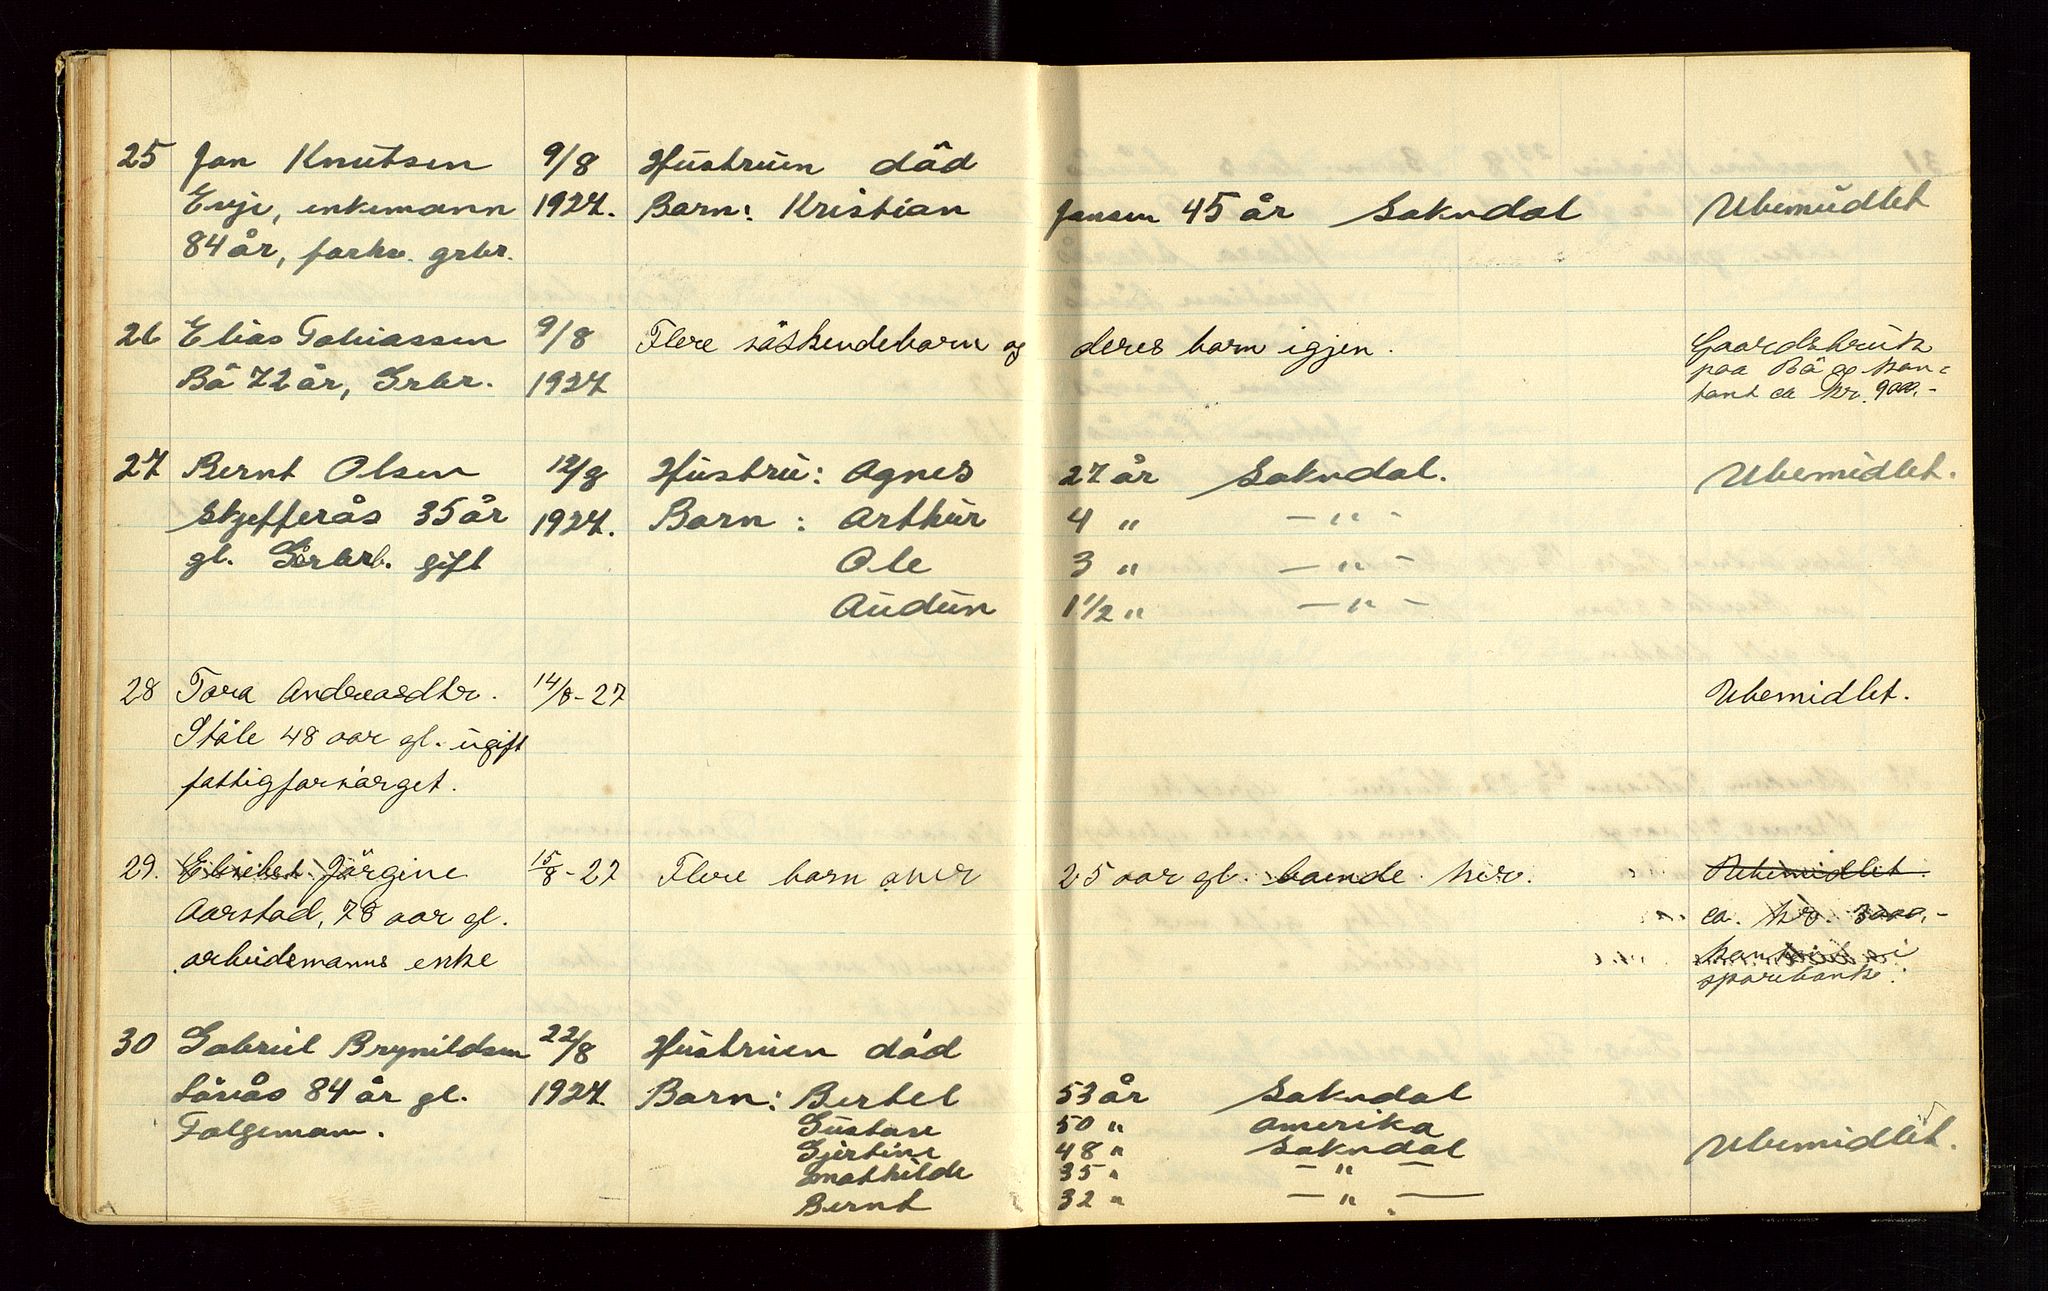 25 Jan Knutsen 9/8 Hustruen död
Eige, enkemann 1927. Barn: Kristian Jansen 45 år Sokndal Ubemidlet
84 år, forhv. grbr.
26 Elias Tobiassen 9/8 Flere söskendebarn og deres barn igjen. Gaardsbruk
Bö 72 år, Grbr. 1927 paa Bö og kon-
tant ca kr. 9000,-
27 Bernt Olsen 12/8 Hustru: Agnes 27 år Sokndal. Ubemidlet.
Skjefferås 35 år 1927. Barn: Arthur 4 " — " -
gl. Grbr. gift Ole 3 " — " —
Audun 1 1/2 " — " —
28 Tora Andreasdtr. 14/8-27 Ubemidlet.
Ståle 48 aar gl. ugift
fattigforsörget.
29. Elisebet Jörgine 15/8-27 Flere barn over 25 aar gl. boende her. Ubemidlet.
Aarstad, 78 aar gl. ca. kr. 3000,-
arbeidsmanns enke i
sparebank.
30 Gabriel Brynildsen 22/8 Hustruen död
Lövås 84 år gl. 1927. Barn: Bertel 53 år Sokndal
Folgemann. Gustava 50 " Amerika
Gjertine 48 " Sokndal Ubemidlet.
Mathilde 35 " — " —
Bernt 32 " — " —